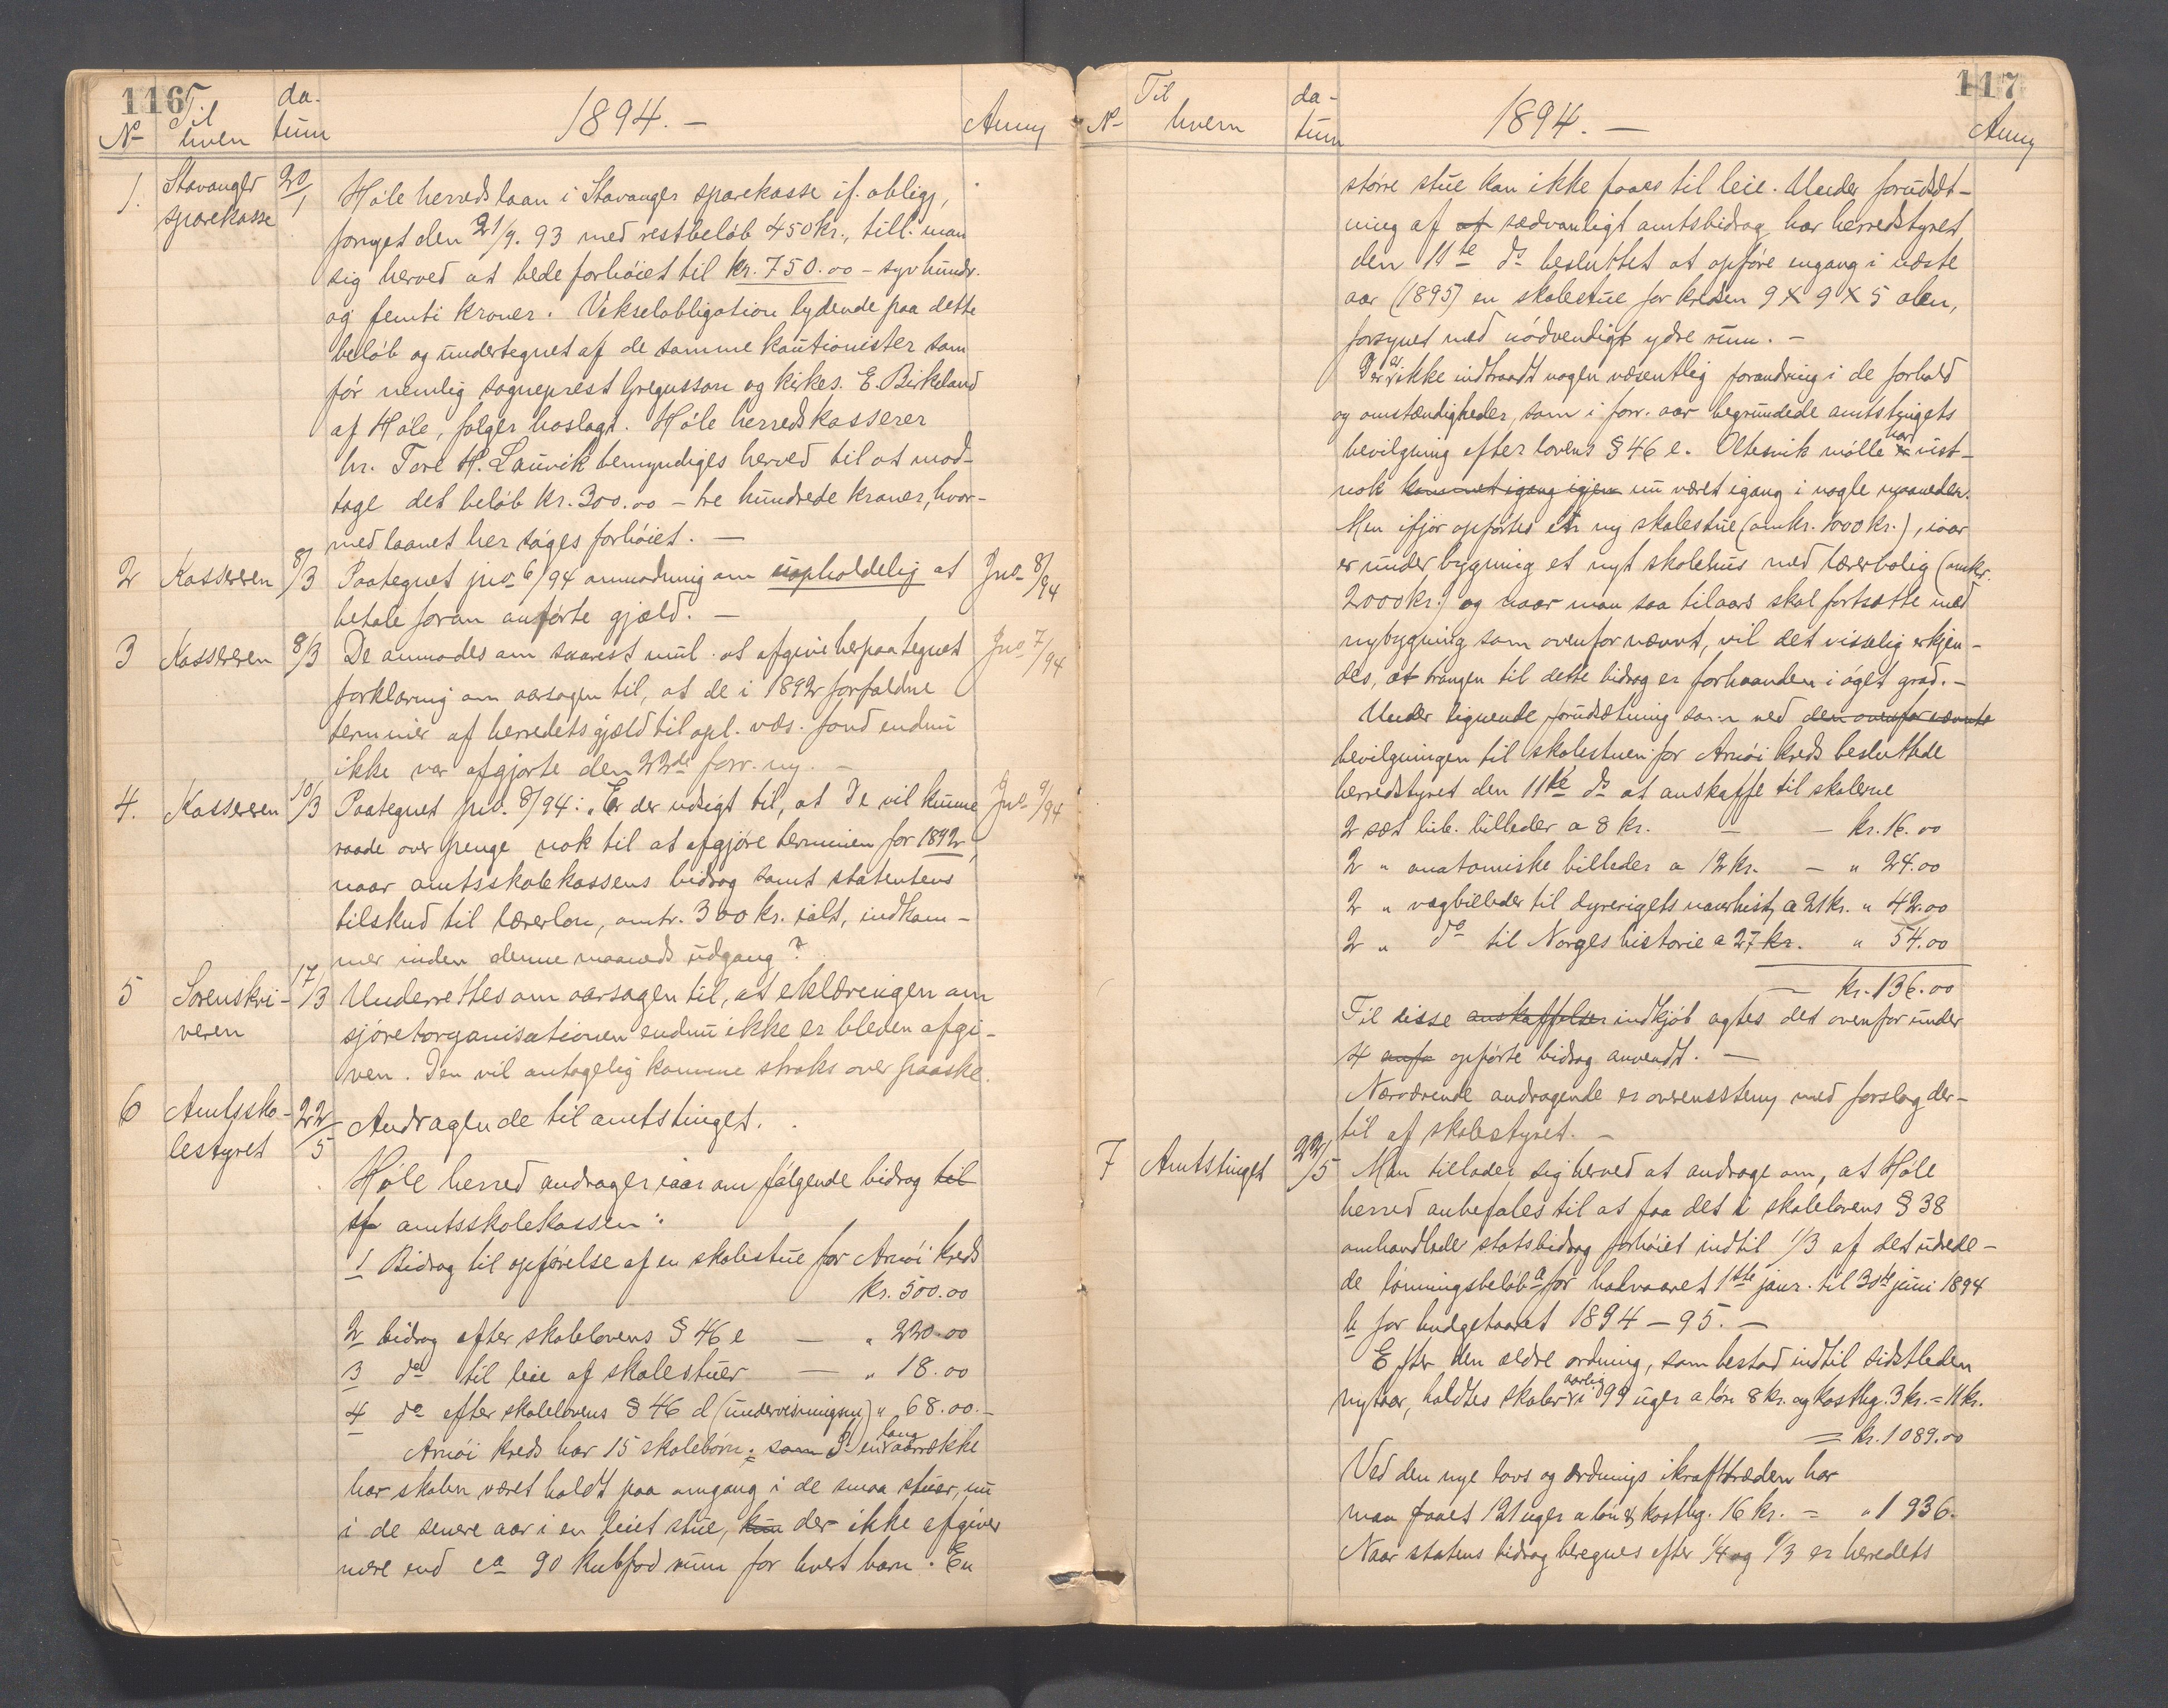 116
No Til hvem da-tum 1894. — Anm
1. Stavanger sparekasse 20/1 Høle herredslaan i Stavanger sparekasse if. obligj,
fornyet den 21/9. 93 med restbeløb 450 kr., till. man
sig herved at bede forhøiet til kr. 750.00 – syv hundr.
og femti kroner. Vekselobligation lydende paa dette
beløb og undertegnet af de samme kautionister som
før nemlig sogneprest Gregussøn og kirkes. E. Birkeland
af Høle, følger hoslagt. Høle herredskasserer
hr. Tore H. Lauvik bemyndiges herved til at mod-
tage det beløb kr. 300.00 – tre hundrede kroner, hvor-
med laanet her søges forhøiet. —
2 Kassereren 8/3 Paategnet jno 6/94 anmodning om uopholdelig at Jno 8/94
betale foran anførte gjæld. —
3 Kassereren 8/3 De anmodes om snarest mul. at afgive herpaategnet Jno 7/94
forklaring om aarsagen til, at de i 1892 forfaldne
terminer af herredets gjæld til opl. væs. fond endnu
ikke var afgjorte den 22de forr. ny. —
4. Kassereren 10/3 Paategnet jno. 8/94: "Er der udsigt til, at De vil kunne Jno 9/94
raade over penge nok til at afgjøre terminen for 1892,
naar amtsskolekassens bidrag samt statentens
tilskud til lærerløn, omtr. 300 kr. ialt, indkom-
mer inden denne maaneds udgang?
5 Sorenskri-veren 17/3 Underrettes om aarsagen til, at erklæringen om
sjøretorganisationen endnu ikke er bleven afgi-
ven. Den vil antagelig komme straks over paaske.
6 Amtssko-lestyret 22/5 Andragende til amtstinget.
Høle herred andrager iaar om følgende bidrag til
af amtsskolekassen:
1 Bidrag til opførelse af en skolestue for Arnøi kreds
kr. 500.00
2 bidrag efter skolelovens § 46 e — " 220.00
3 do til leie af skolestuer — " 18.00
4 do efter skolelovens § 46 d (undervisningsm) " 68.00.–
Arnøi kreds har 15 skolebørn. som I en lang aarrække
har skolen været holdt paa omgang i de smaa stuer, nu
i de senere aar i en leiet stue, kun der ikke afgiver
mere end ca 90 kubfod rum for hvert barn. En
117
No Til hvem da-tum 1894. — Anm
større stue kan ikke faaes til leie. Under forudsæt-
ning af af sædvanligt amtsbidrag har herredstyret
den 11te ds besluttet at opføre engang i næste
aar (1895) en skolestue for kredsen 9 x 9 x 5 alen,
forsynet med nødvendigt ydre rum. —
Der er ikke indtraadt nogen væsentlig forandring i de forhold
og omstændigheder, som i forr. aar begrundede amtstingets
bevilgning efter lovens § 46 e. Oltesvik mølle har vist-
nok kommet igang igjen nu været igang i nogle maaneder.
Men ifjor opførtes en ny skolestue (omkr. 1000 kr.), iaar
er under bygning et nyt skolehus med lærerbolig (omkr.
2000 kr.) og naar man saa tilaars skal fortsætte med
nybygning som ovenfor nævnt, vil det visselig erkjen-
des, at trangen til dette bidrag er forhaanden i øget grad. —
Under lignende forudsætning som ved den ovenfor nævnte
bevilgningen til skolestuen for Arnøi kreds besluttede
herredstyret den 11te ds at anskaffe til skolerne
2 sæt bib. billeder a 8 kr. — — kr. 16.00
2 " anatomiske billeder a 12 kr. — " 24.00
2 " vægbilleder til dyrerigets naturhist, a 21 kr. " 42.00
2 " do til Norges historie a 27 kr. " 54.00
— kr. 136.00
Til disse anskaffelser indkjøb agtes det ovenfor under
4 anfø opførte bidrag anvendt. —
Nærværende andragende er overensstem med forslag der-
til af skolestyret. —
7 Amtstinget 22/5 Man tillader sig herved at andrage om, at Høle
herred anbefales til at faa det i skolelovens § 38
omhandlede statsbidrag forhøiet indtil 1/3 af det udrede-
de lønningsbeløb a for halvaaret 1ste janr. til 30te juni 1894
b for budgetaaret 1894–95. —
Efter den ældre ordning, som bestod indtil sidstleden
nytaar, holdtes skoler aarlig i 99 uger a løn 8 kr. og kosthg. 3 kr. = 11 kr.
= kr. 1089.00
Ved den nye lovs og ordnings ikrafttræden har
man faaet 121 uger a løn & kosthg. 16 kr. = " 1936.
Naar statens bidrag beregnes efter 1/4 og 1/3 er herredets